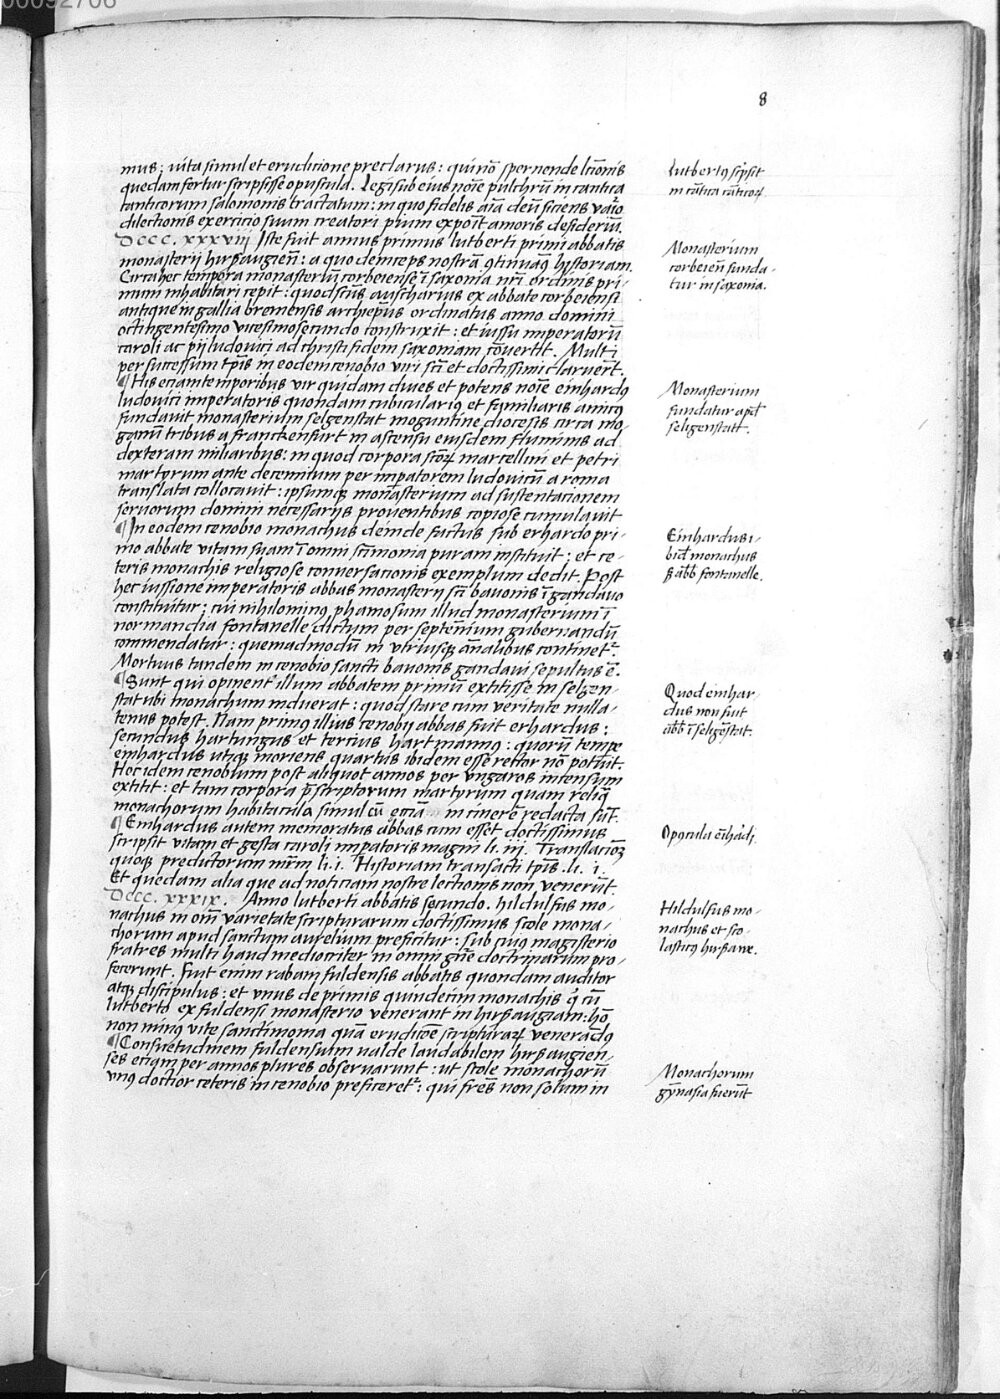 00092706
8
mus; vita simul et erudicione preclarus: qui nō spernende lcc̄ionis
quedam fertur scripsisse opuscula. Legi sub eius noīe pulchrū in cantica
canticorum salomonis tractatum: in quo fidelis aīa deū siciens vario
dilectionis exercicio suum creatori pium exponit amoris desideriū.
Dccc. xxxviij Iste fuit annus primus lutberti primi abbatis
monasterij hirßaugieñ: a quo deinceps nostrā ꝯtinuāꝯ hystoriam.
Circa hec tempora monasteriū corbeiense ī saxonia nr̄i ordinis pri-
mum inhabitari cepit: quod sctūs anscharius ex abbate corbeiensi
antique in gallia bremensis archiep̄us ordinatus anno domini
octingentesimo vicesimo secundo construxit: et iussu imperatorū
caroli ac pij ludovici ad christi fidem saxoniam cōvertit. Multi
per successum tp̄is in eodem cenobio viri scti et doctissimi claruerūt.
¶His eciam temporibus vir quidam dives et potens noīe einhardꝯ
ludovici imperatoris quondam cubiculariꝯ et familiaris amicꝯ
fundavit monasterium selgenstat moguntine diocesis circa mo-
ganū tribus a franckenfurt in ascensu eiusdem fluminis ad
dexteram miliaribus: in quod corpora sctōꝝ marcellini et petri
martyrum ante decennium per imp̄atorem ludovicū a roma
translata collocavit: ipsumqꝫ monasterium ad sustentacionem
servorum domini necessarijs proventibus copiose cumulavit
¶In eodem cenobio monachus deinde factus sub erhardo pri-
mo abbate vitam suam ī omni sctimonia puram instituit: et ce-
teris monachis religiose conversacionis exemplum dedit. Post
hec iussione imperatoris abbas monasterij scti bavonis ī gandavo
constituitur: cui nihilominꝯ phamosum illud monasterium ī
normandia fontanelle dictum per septennium gubernandū
commendatur: quemadmodū in vtriusqꝫ annalibus continetᷣ.
Mortuus tandem in cenobio sancti bavonis gandavi sepultus ē.
¶Sunt qui opinentᷣ illum abbatem primū extitisse in selgen-
stat ubi monachum induerat: quod stare cum veritate nulla-
tenus potest. Nam primꝯ illius cenobij abbas fuit erhardus:
secundus hartungus et tercius hartmannꝯ: quorū tempe
einhardus utiqꝫ moriens quartus ibidem esse rector nō potuit.
Hoc idem cenobium post aliquot annos per vngaros incensum
extitit: et tam corpora p̄scriptorum martyrum quam reliq̄
monachorum habitacula simul cū ecciā in cinerē redacta sūt.
¶Einhardus autem memoratus abbas cum esset doctissimus
scripsit vitam et gesta caroli imp̄atoris magni li. iij. Translacioꝫ
quoqꝫ predictorum mr̄m li. i. Historiam transacti tp̄is. li. i.
Et quedam alia que ad noticiam nostre lectionis non venerūt.
Dccc. xxxix. Anno lutberti abbatis secundo. hildulfus mo-
nachus in om̄i varietate scripturarum doctissimus scole mona-
chorum apud sanctum aurelium preficitur: sub cuiꝯ magisterio
fratres multi haud mediocriter in omni gn̄e doctrinarum pro-
fecerunt. Fuit enim rabani fuldensis abbatis quondam auditor
atqꝫ discipulus: et vnus de primis quindecim monachis q̇ cū
lutberto ex fuldensi monasterio venerant in hirßaugiam: hō
non minꝯ vite sanctimonia quā erudicōe scripturaꝝ venerādꝯ
¶Consuetudinem fuldensium valde laudabilem hirßaugien-
ses eciam per annos plures observarunt: ut scole monachorū
vnꝯ doctior ceteris in cenobio preficeretᷣ: qui fres̄ non solum in
Lutbertꝯ scp̄sit
in cātica cāticoꝝ
Monasterium
corbeieñ funda-
tur in saxonia.
Monasterium
fundatur apd̄
selgenstatt.
Einhardus i-
bid̄ monachus
ꝑ abb̄ fontinelle.
Quod einhar-
dus non fuit
abb̄ ī selgēstat.
Opꝯcula eīhadi
Hildulfus mo-
nachus et sco-
lasticꝯ hirßaue.
Monachorum
gȳnasia fuerūt